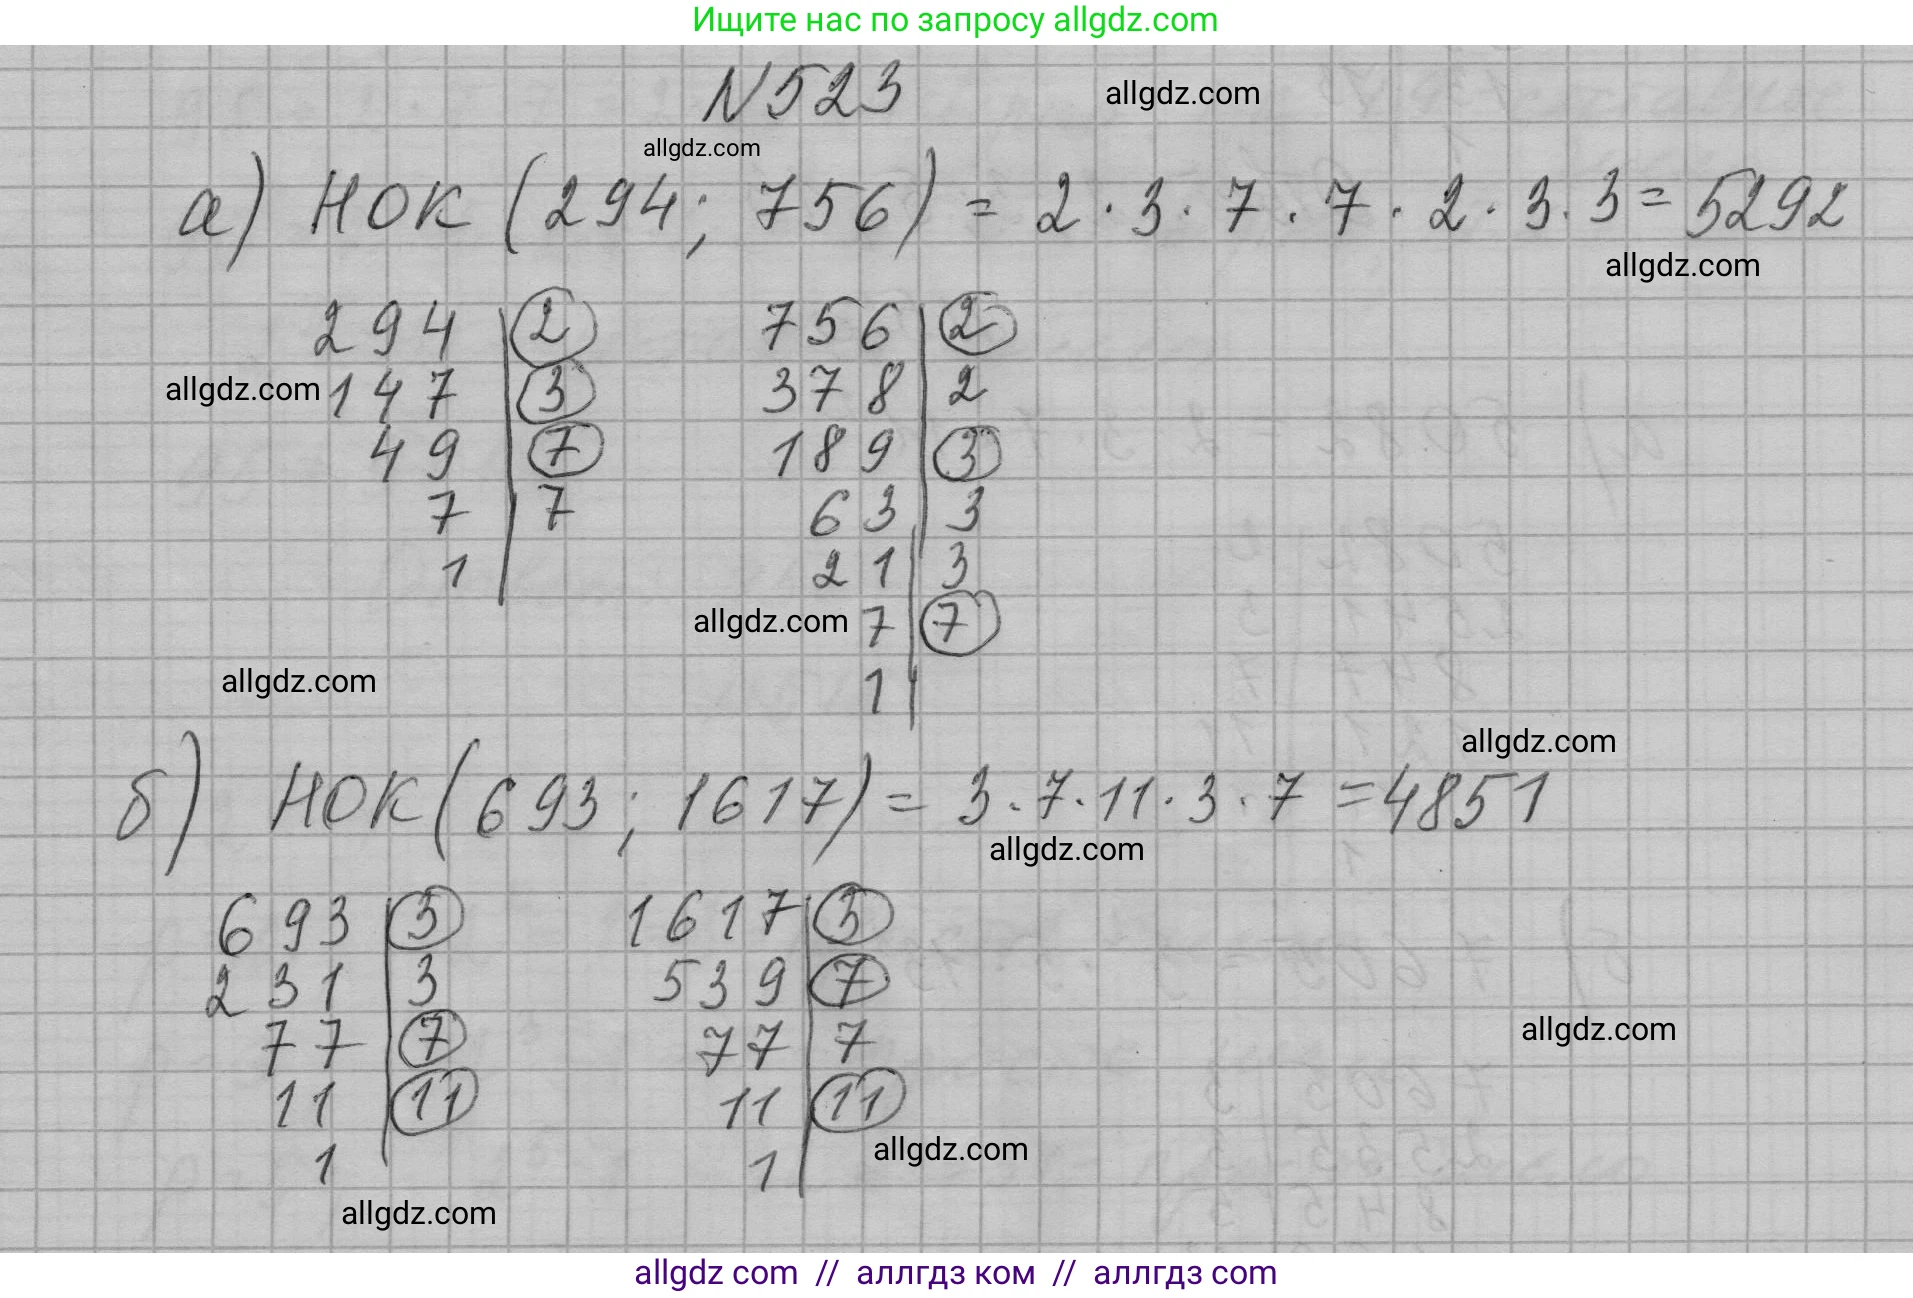 Ищите нас по запросу allgdz.com
N523
allgdz.com
allgdz.com
а) НОК (294; 756) = 2 · 3 · 7 · 7 · 2 · 3 · 3 = 5292
allgdz.com
294 | 2 756 | 2
allgdz.com 147 | 3 378 | 2
49 | 7 189 | 3
7 | 7 63 | 3
1 | 21 | 3
allgdz.com 7 | 7
allgdz.com 1 |
allgdz.com
б) НОК (693; 1617) = 3 · 7 · 11 · 3 · 7 = 4851
allgdz.com
693 | 3 1617 | 3
231 | 3 539 | 7
77 | 7 77 | 7
allgdz.com
11 | 11 11 | 11
1 | 1 |
allgdz.com
allgdz.com
allgdz com // аллгдз ком // аллгдз com